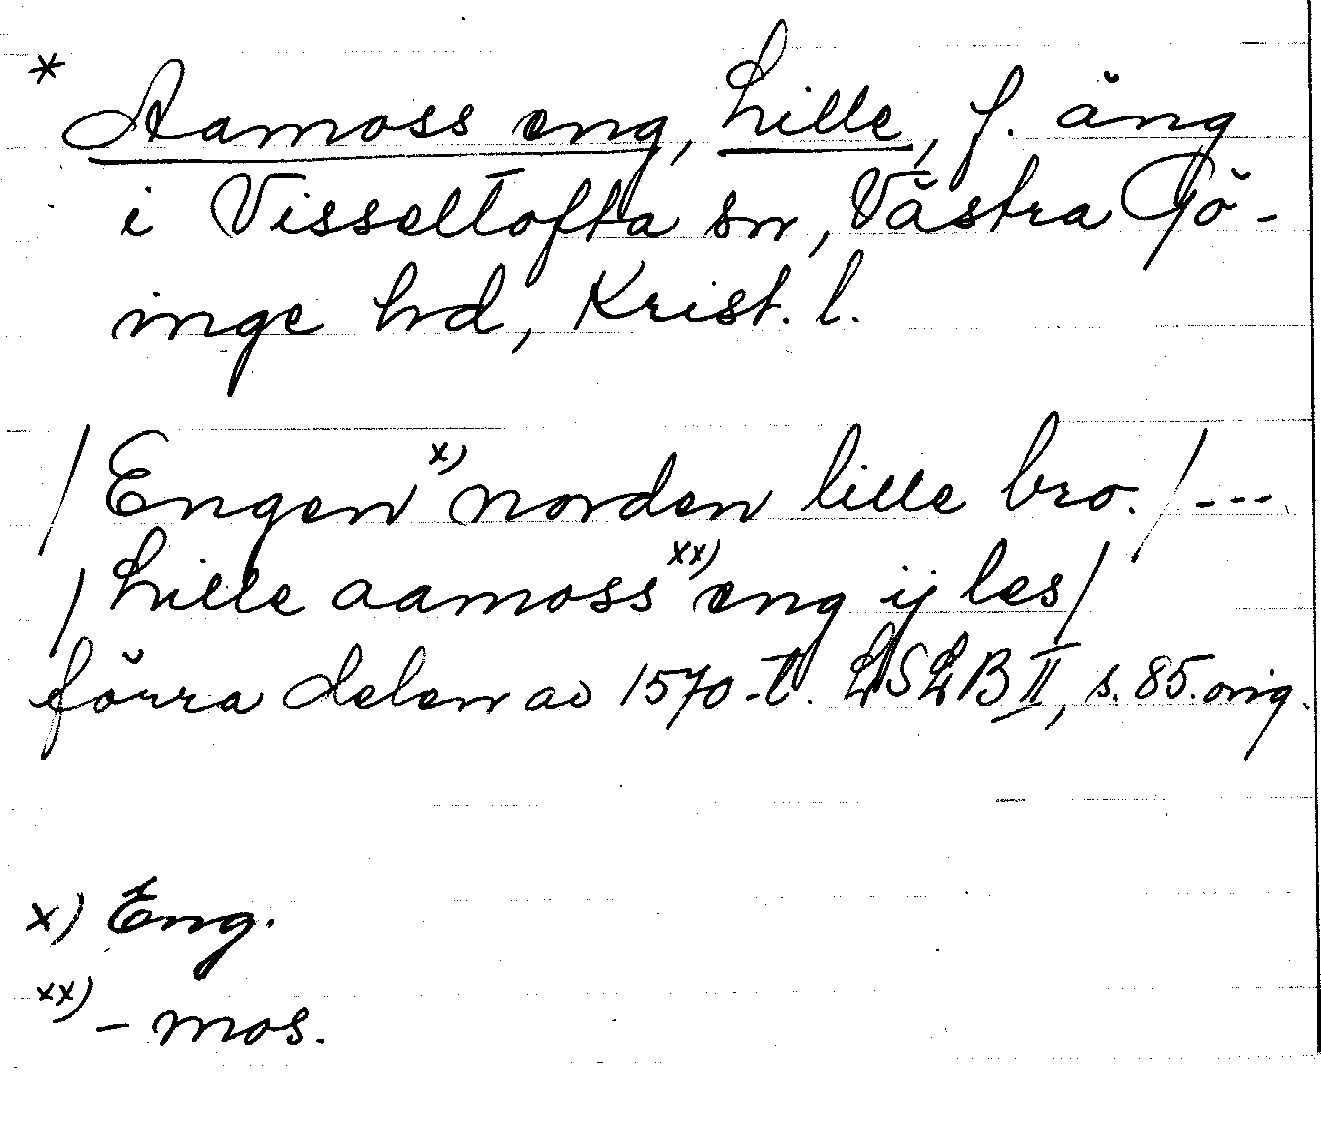 * Aamoss eng, Lille, f. äng
i Visseltofta sn, Västra Gö-
inge hd, Krist. l.
/Engen x) norden lille bro./---
/Lille aamoss xx) eng ij les/
förra delen av 1570-t. LSLB II, s. 85. orig.
x) Eng.
xx) - mos.